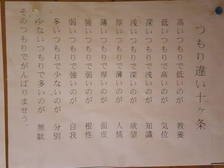 つもり違い十ヶ条
高いつもりで低いのが 教養
低いつもりで高いのが 気位
深いつもりで浅いのが 知識
浅いつもりで深いのが 欲望
厚いつもりで薄いのが 人情
薄いつもりで厚いのが 面皮
強いつもりで弱いのが 根性
弱いつもりで強いのが 自我
多いつもりで少ないのが 分別
少ないつもりで多いのが 無駄
そのつもりでがんばりませう